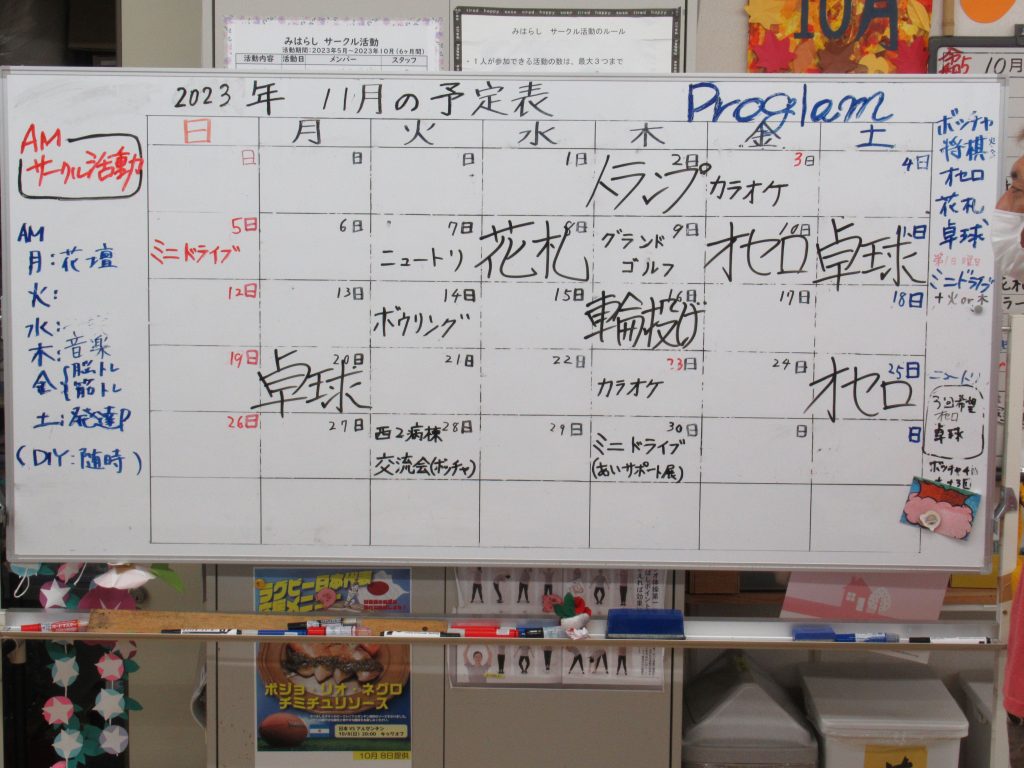 みはらし サークル活動
活動期間:2023年5月～2023年10月(6ヶ月間)
活動内容 活動日 メンバー スタッフ
みはらし サークル活動のルール
・1人が参加できる活動の数は、最大3つまで
10月
10月
2023年 11月の予定表
Proglam
AM
サークル活動
AM
月:花壇
火:
水:
木:音楽
金 脳トレ
筋トレ
土:発達P
(DIY:随時)
日 月 火 水 木 金 土
日 日 日 1日 2日 3日 4日
トランプ カラオケ
5日 6日 7日 8日 9日 10日 11日
ミニドライブ ニュートリ 花札 グランドゴルフ オセロ 卓球
12日 13日 14日 15日 16日 17日 18日
ボウリング 輪投げ
19日 20日 21日 22日 23日 24日 25日
卓球 カラオケ オセロ
26日 27日 28日 29日 30日 日 日
西2病棟
交流会(ボッチャ)
ミニドライブ
(あいサポート展)
ボッチャ
将棋
オセロ
花札
卓球
第1日曜日
ミニドライブ
+火or木
ニュートリ
3回希望
オセロ
卓球
ラグビー日本代表
ボジョーリオ・ネグロ
チミチュリソース
日本 VS アルゼンチン
10月8日提供